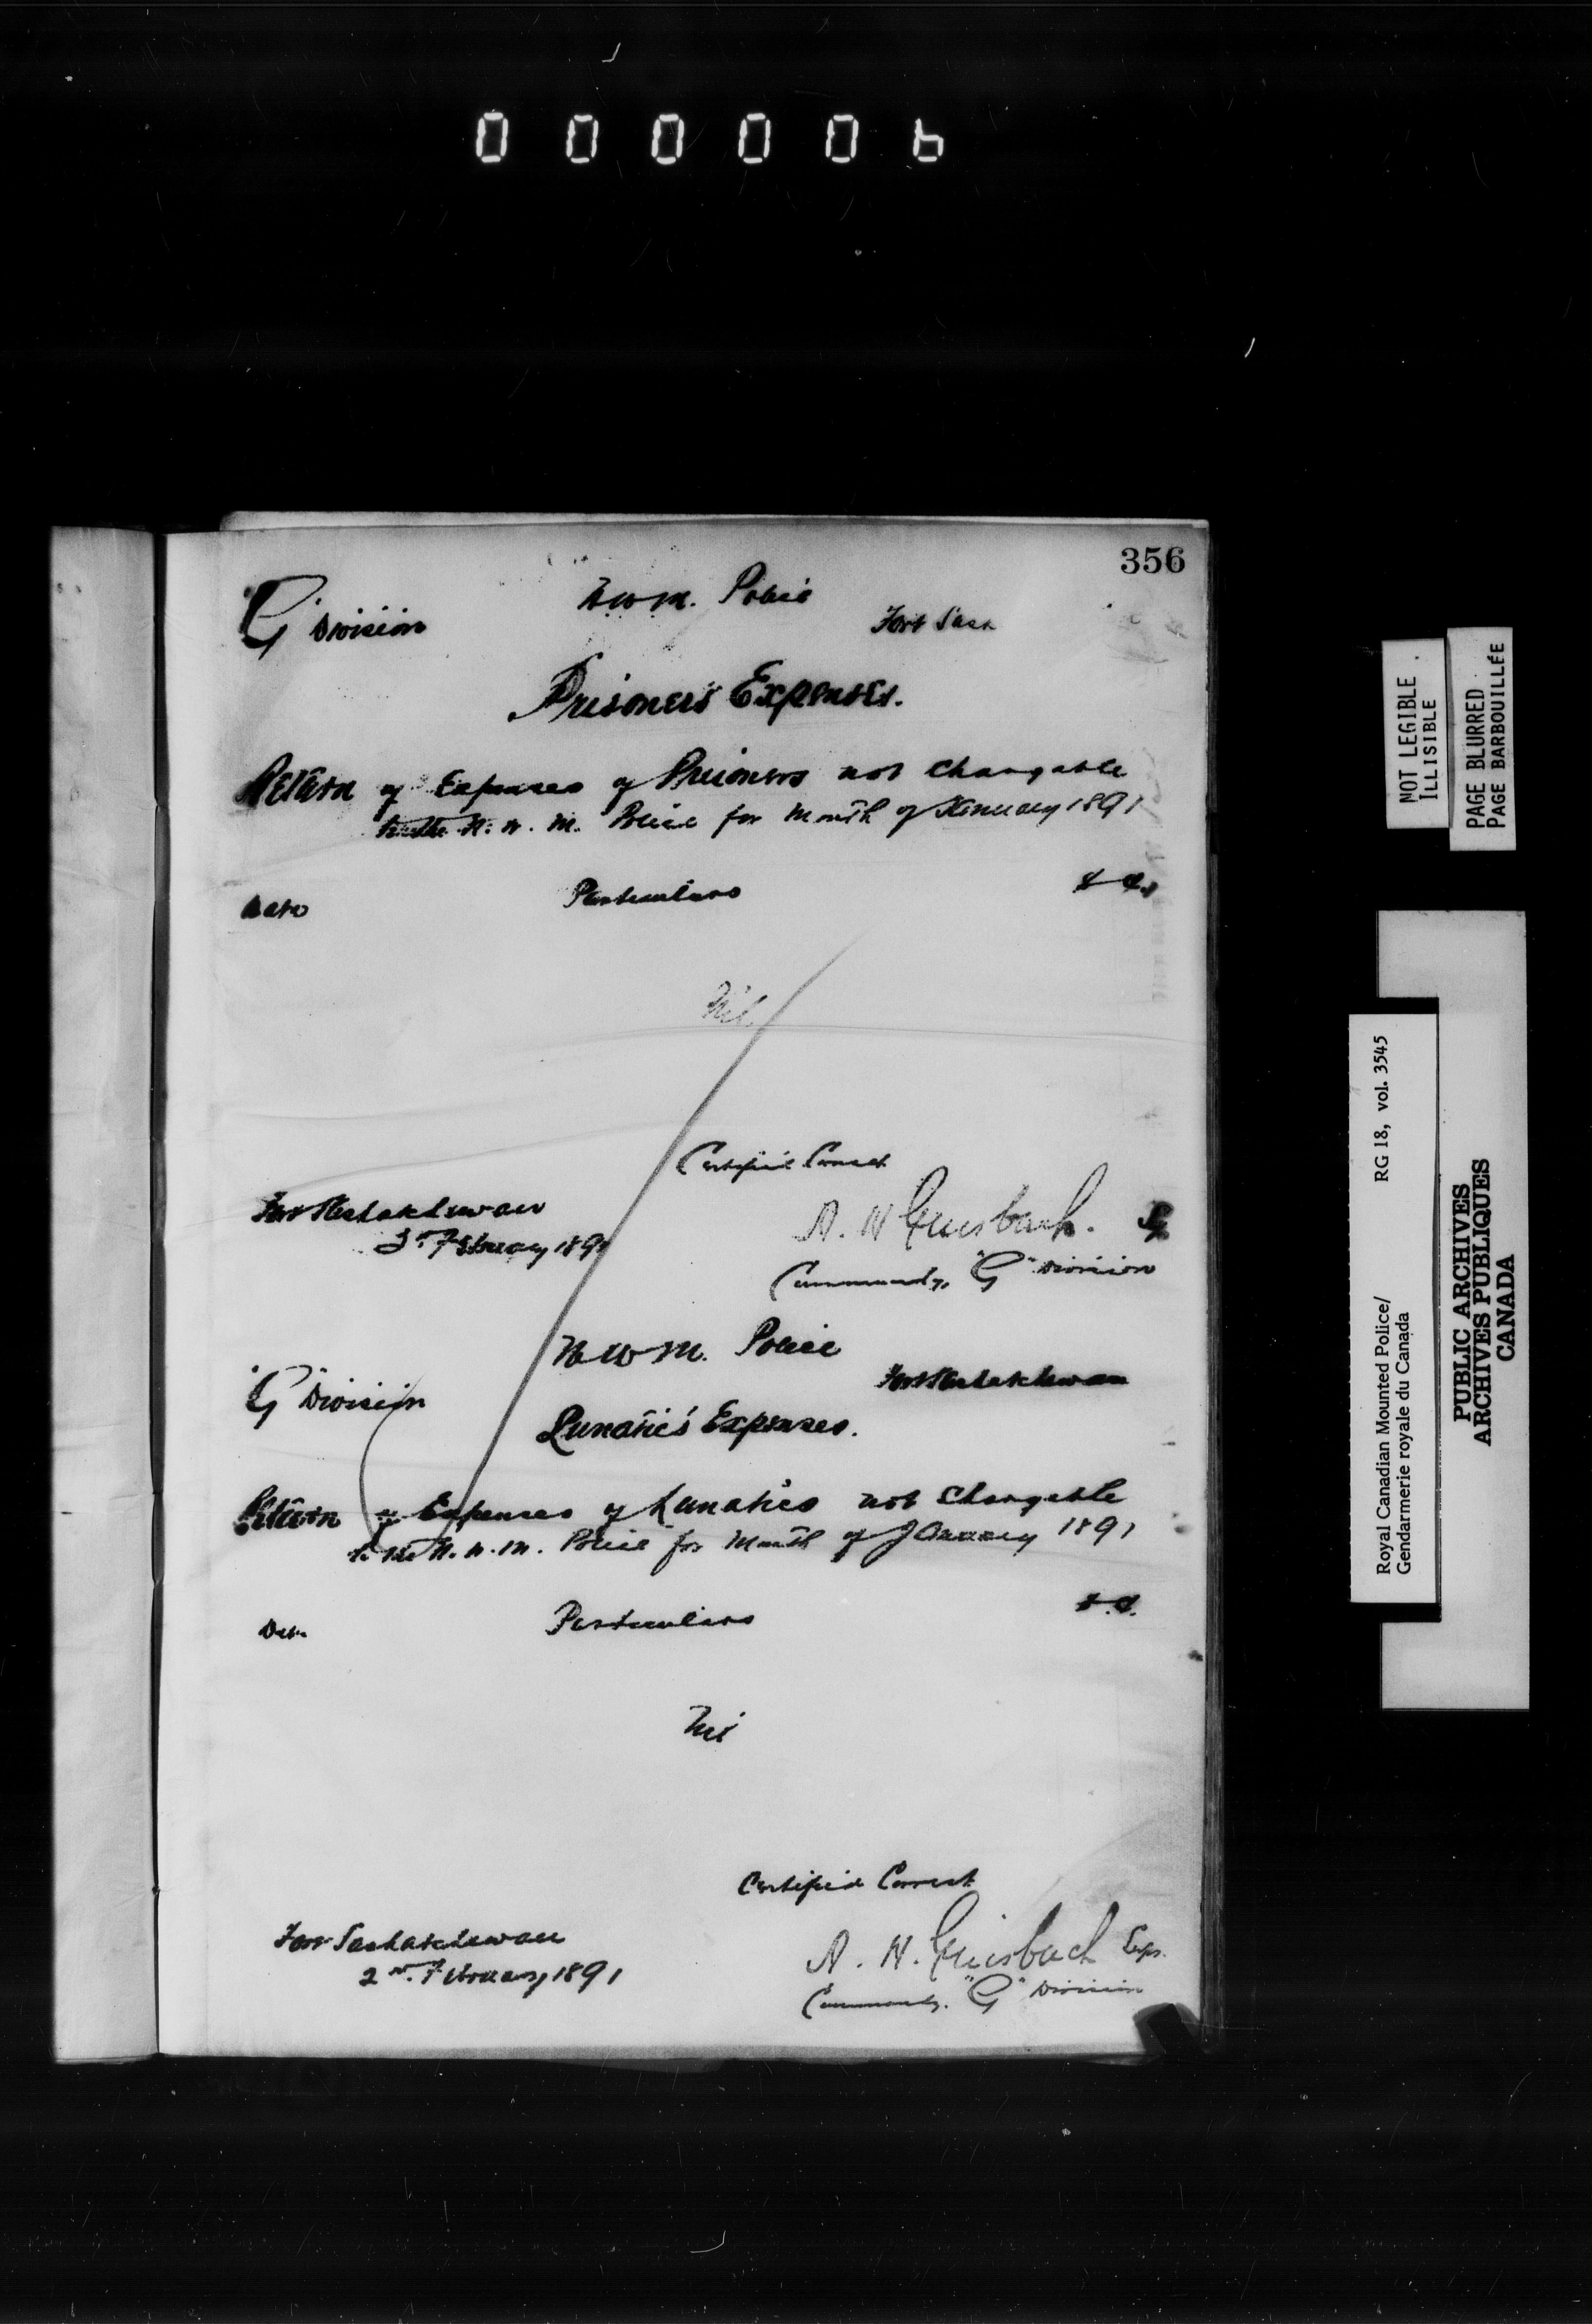 000006
356
N W M. Police
"G" Division
Fort Sask
Prisoners Expenses.
Return of Expenses of Prisoners not Chargable
to the N. W. M. Police for Month of January 1891
Date Particulars $ c.
Nil.
Certified Correct
Fort Saskatchewan
2nd February 1891
A. H. Griesbach.
Commandg. "G" Division
N W M. Police
"G" Division
Fort Saskatchewan
Lunatic's Expenses.
Return of Expenses of Lunatics not Chargable
to the N. W. M. Police for Month of January 1891
Date Particulars $ c.
Nil
Certified Correct
Fort Saskatchewan
2nd. February 1891
A. H. Griesbach Supt.
Commandg. "G" Division
NOT LEGIBLE
ILLISIBLE
PAGE BLURRED
PAGE BARBOUILLÉE
Royal Canadian Mounted Police/ RG 18, vol. 3545
Gendarmerie royale du Canada
PUBLIC ARCHIVES
ARCHIVES PUBLIQUES
CANADA